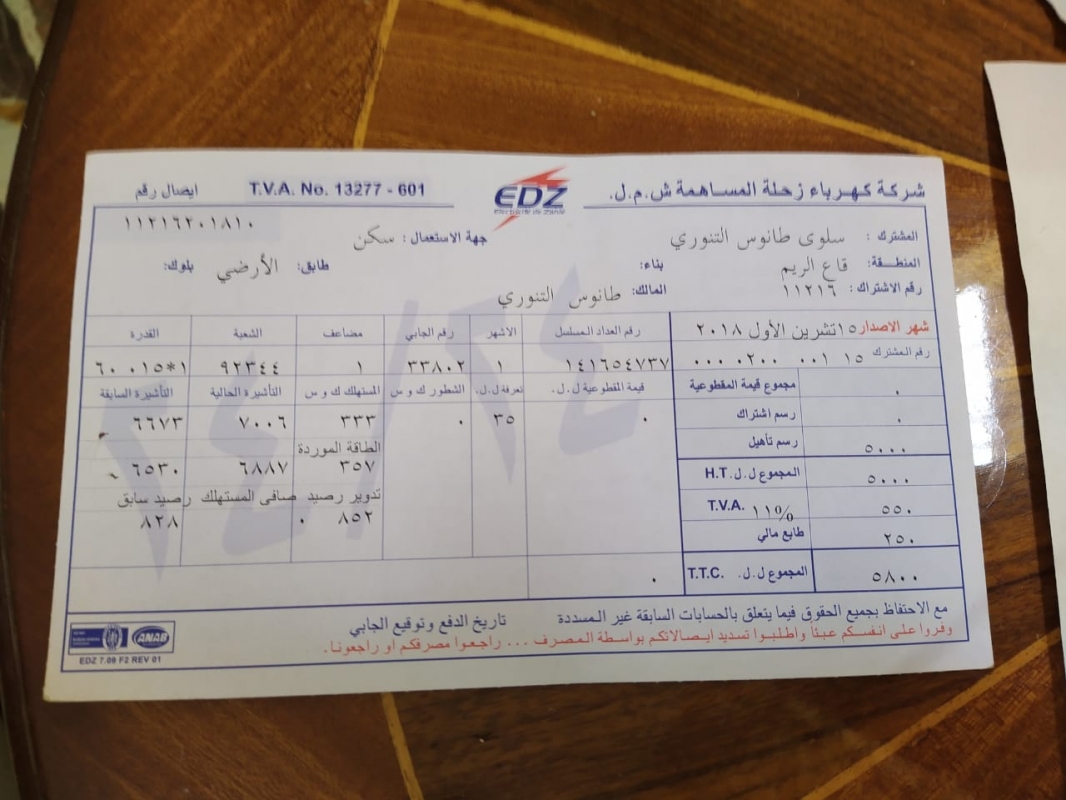 شركة كهرباء زحلة المساهمة ش.م.ل.
EDZ
T.V.A. No. 13277 - 601
ايصال رقم
١١٢١٦٢٠١٨١٠
المشترك : سلوى طانوس التنوري
جهة الاستعمال : سكن
المنطقة: قاع الريم
بناء:
طابق: الأرضي
بلوك:
رقم الاشتراك : ١١٢١٦
المالك: طانوس التنوري
٢٤/٢٤
شهر الاصدار ١٥ تشرين الأول ٢٠١٨
رقم المشترك ١٥ ٠٠١ ٠٢٠٠ ٠٠٠
رقم العداد المسلسل
الاشهر
رقم الجابي
مضاعف
الشعبة
القدرة
١٤١٦٥٤٧٣٧
١
٣٣٨٠٢
١
٩٢٣٤٤
١*٠١٥ ٦٠
قيمة المقطوعية ل.ل.
تعرفة ل.ل.
الشطور ك و س
المستهلك ك و س
التأشيرة الحالية
التأشيرة السابقة
٠
٣٥
٠
٣٣٣
٧٠٠٦
٦٦٧٣
الطاقة الموردة
٣٥٧
٦٨٨٧
٦٥٣٠
تدوير رصيد صافى المستهلك رصيد سابق
٨٥٢
٠
٨٢٨
مجموع قيمة المقطوعية
٠
رسم اشتراك
٠
رسم تأهيل
٥٠٠٠
المجموع ل.ل. H.T.
٥٠٠٠
T.V.A. ١١%
٥٥٠
طابع مالي
٢٥٠
المجموع ل.ل. T.T.C.
٥٨٠٠
٠
مع الاحتفاظ بجميع الحقوق فيما يتعلق بالحسابات السابقة غير المسددة
تاريخ الدفع وتوقيع الجابي
وفروا على انفسكم عبئاً واطلبوا تسديد ايصالاتكم بواسطة المصرف ... راجعوا مصرفكم او راجعونا.
ANAB
EDZ 7.09 F2 REV 01